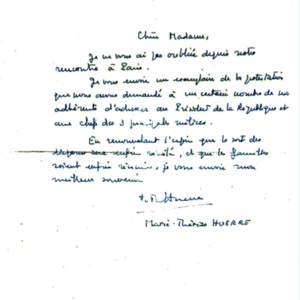 Chère Madame,
Je ne vous ai pas oubliée depuis notre
rencontre à Paris.
Je vous envoie un exemplaire de la protestation
que nous avons demandé à un certain nombre de nos
adhérents d'adresser au Président de la République et
aux chefs des 3 principales
En renouvelant l'espoir que le sort des
sera enfin et que les familles
soient enfin réunies, je vous envoie mon
meilleur souvenir
Marie-Thérèse HUERRE